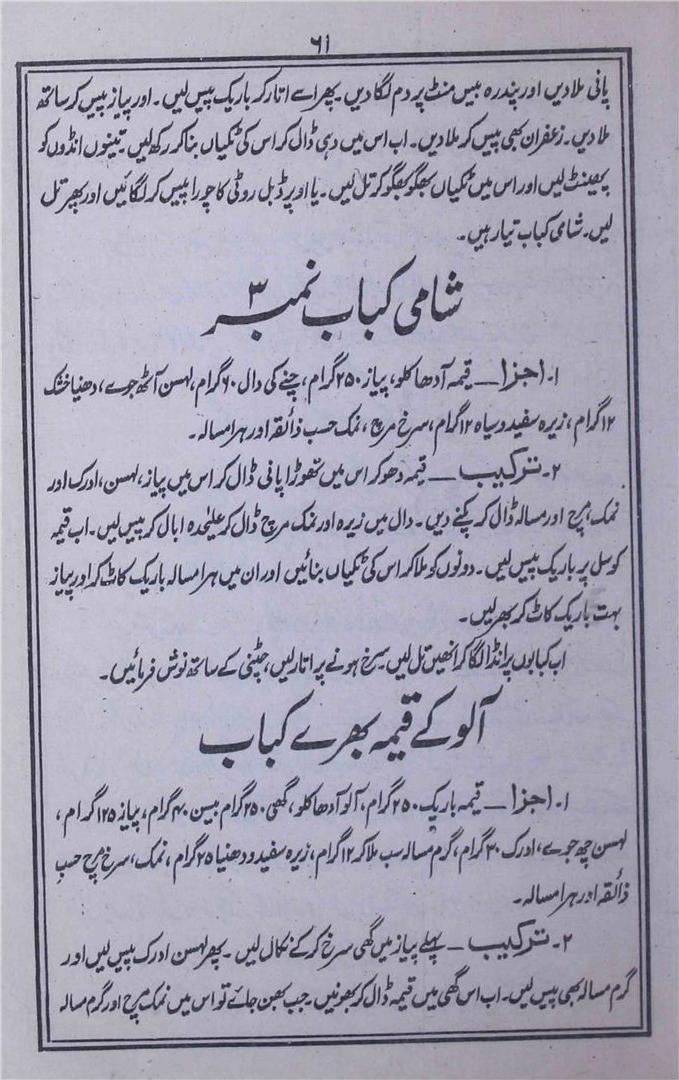 ۶۱
پانی ملا دیں اور پندرہ بیس منٹ پر دم لگا دیں۔ پھر اسے اتار کر باریک پیس لیں۔ اور پیاز پیس کر ساتھ
ملا دیں۔ زعفران بھی پیس کر ملا دیں۔ اب اس میں دہی ڈال کر اس کی ٹکیاں بنا کر رکھ لیں۔ تینوں انڈوں کو
پھینٹ لیں اور اس میں ٹکیاں بھگو بھگو کر تل لیں۔ یا اوپر ڈبل روٹی کا چورا پیس کر لگائیں اور پھر تل
لیں۔ شامی کباب تیار ہیں۔
شامی کباب نمبر ۳
۱۔ اجزا — قیمہ آدھا کلو، پیاز ۲۵۰ گرام، چنے کی دال ۶۰ گرام، لہسن آٹھ جوے، دھنیا خشک
۱۲ گرام، زیرہ سفید و سیاہ ۱۲ گرام، سرخ مرچ، نمک حسب ذائقہ اور ہرا مسالہ۔
۲۔ ترکیب — قیمہ دھو کر اس میں تھوڑا پانی ڈال کر اس میں پیاز، لہسن، ادرک اور
نمک، مرچ اور مسالہ ڈال کر پکنے دیں۔ دال میں زیرہ اور نمک مرچ ڈال کر علیحدہ ابال کر پیس لیں۔ اب قیمہ
کو سل پر باریک پیس لیں۔ دونوں کو ملا کر اس کی ٹکیاں بنائیں اور ان میں ہرا مسالہ باریک کاٹ کر اور پیاز
بہت باریک کاٹ کر بھر لیں۔
اب کبابوں پر انڈا لگا کر انھیں تل لیں۔ سرخ ہونے پر اتار لیں، چٹنی کے ساتھ نوش فرمائیں۔
آلو کے قیمہ بھرے کباب
۱۔ اجزا — قیمہ باریک ۲۵۰ گرام، آلو آدھا کلو، گھی ۲۵۰ گرام بیسن ۴۰ گرام، پیاز ۱۲۵ گرام،
لہسن چھ جوے، ادرک ۳۰ گرام، گرم مسالہ سب ملا کر ۱۲ گرام، زیرہ سفید و دھنیا ۲۵ گرام، نمک، سرخ مرچ حسب
ذائقہ اور ہرا مسالہ۔
۲۔ ترکیب — پہلے پیاز میں گھی سرخ کر کے نکال لیں۔ پھر لہسن ادرک پیس لیں اور
گرم مسالہ بھی پیس لیں۔ اب اس گھی میں قیمہ ڈال کر بھونیں۔ جب بھن جائے تو اس میں نمک مرچ اور گرم مسالہ